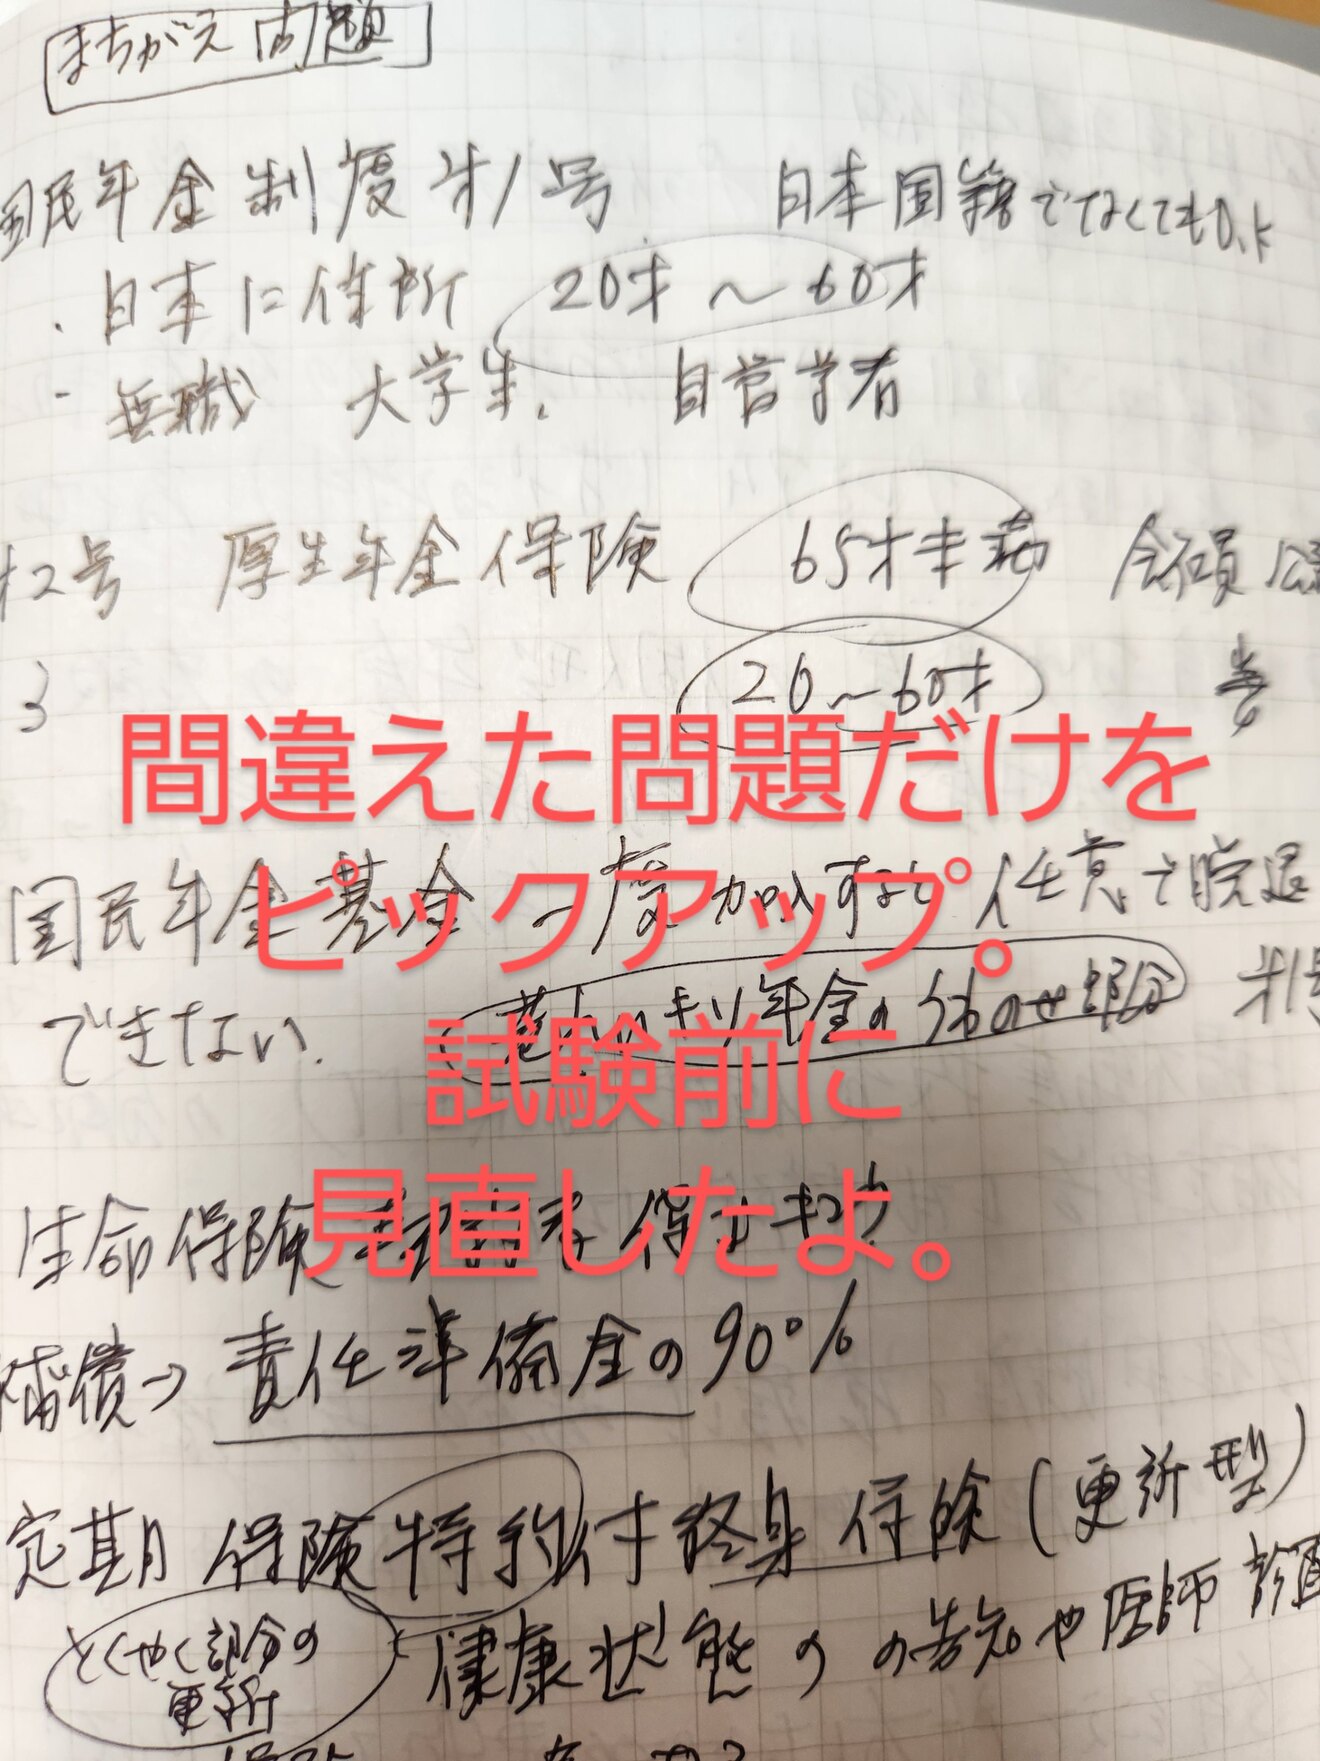 まちがえ問題
国民年金制度 才1号 日本国籍でなくてもOK
・日本に住所 20才〜60才
- 無職 大学生、 自営学者
才2号 厚生年金保険 65才未満 会社員
3 20〜60才
間違えた問題だけを
国民年金基金 一度加入すると 任意で脱退
ピックアップ。
できない. 老れいキソ年金のうわのせ部分 才1号
試験前に
生命保険 保ゴキコウ
見直したよ。
補償→ 責任準備金の90%
定期保険特約付終身保険(更新型)
とくやく部分の
更新
健康状態の の告知や医師